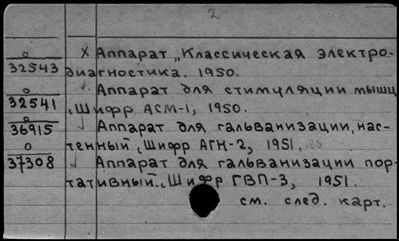 2
о
32543
х Аппарат „Классическая электро-
диагностика. 1950.
о
32541
√ Аппарат для стимуляции мышц
, Шифр АСМ-1, 1950.
о
36915
√ Аппарат для гальванизации, нас-
тенный, Шифр АГН-2, 1951.
о
37308
√ Аппарат для гальванизации пор-
тативный., Шифр ГВП-3, 1951.
см. след. карт.